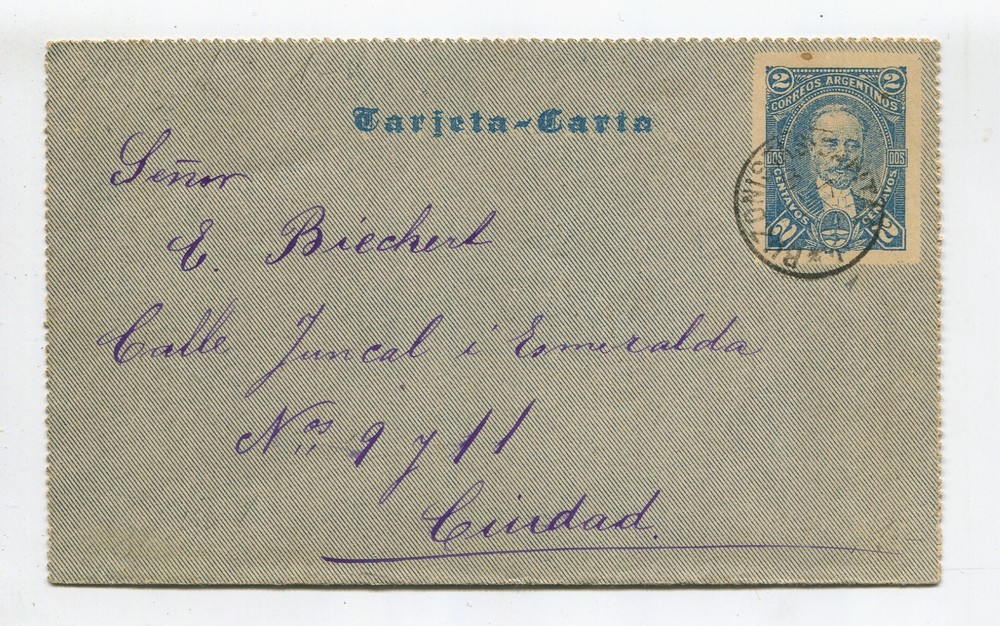 Tarjeta-Carta
2 2
CORREOS ARGENTINOS
DOS DOS
CENTAVOS CENTAVOS
2 2
Señor
E. Biechert
Calle Juncal i Esmeralda
Nos 9 y 11
Ciudad.